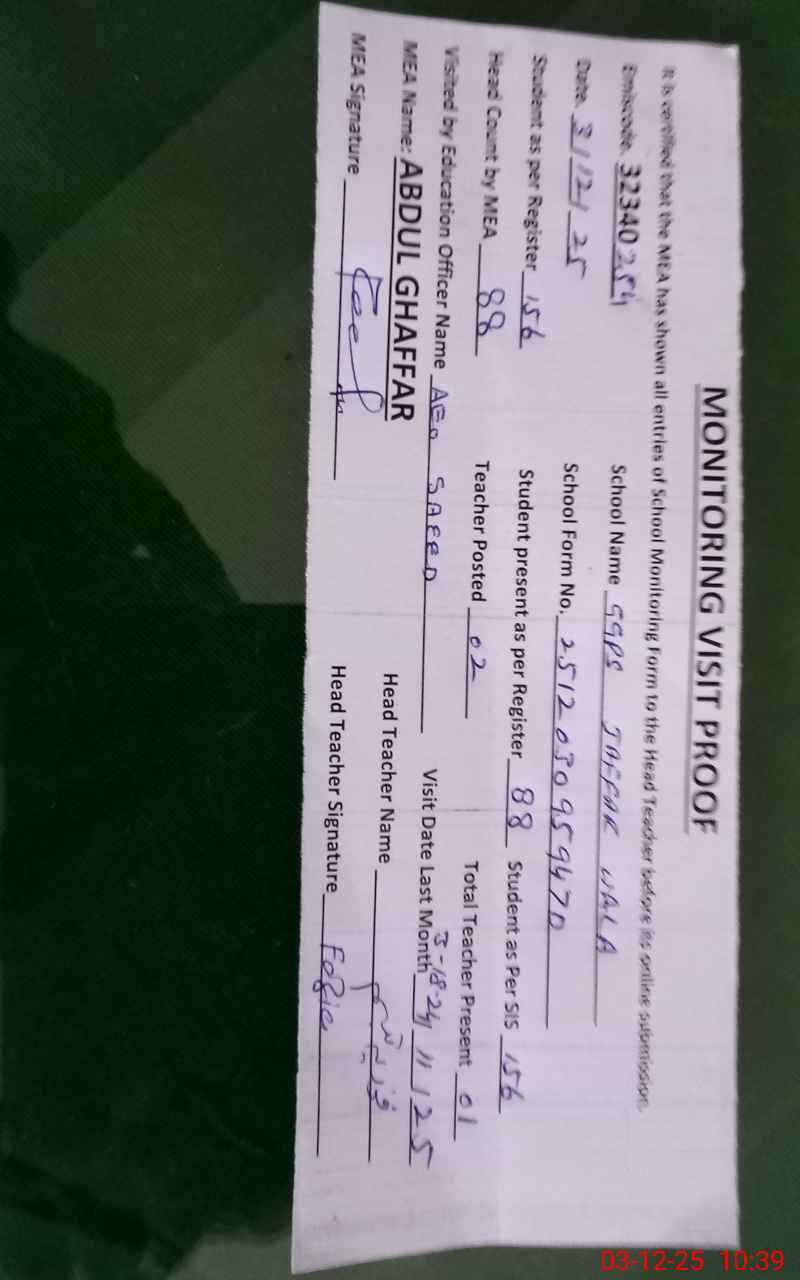 MONITORING VISIT PROOF
It is certified that the MEA has shown all entries of School Monitoring Form to the Head Teacher before its online submission.
Emiscode. 32340254 School Name GGPS JAFFAR WALA
Date. 3/12/25 School Form No. 2512030959470
Student as per Register 156 Student present as per Register 88 Student as Per SIS 156
Head Count by MEA 88 Teacher Posted 02 Total Teacher Present 01
Visited by Education Officer Name AEO SAEED Visit Date Last Month 3-18-24/11/25
MEA Name: ABDUL GHAFFAR Head Teacher Name فوزیہ
MEA Signature Head Teacher Signature Fozia
03-12-25 10:39